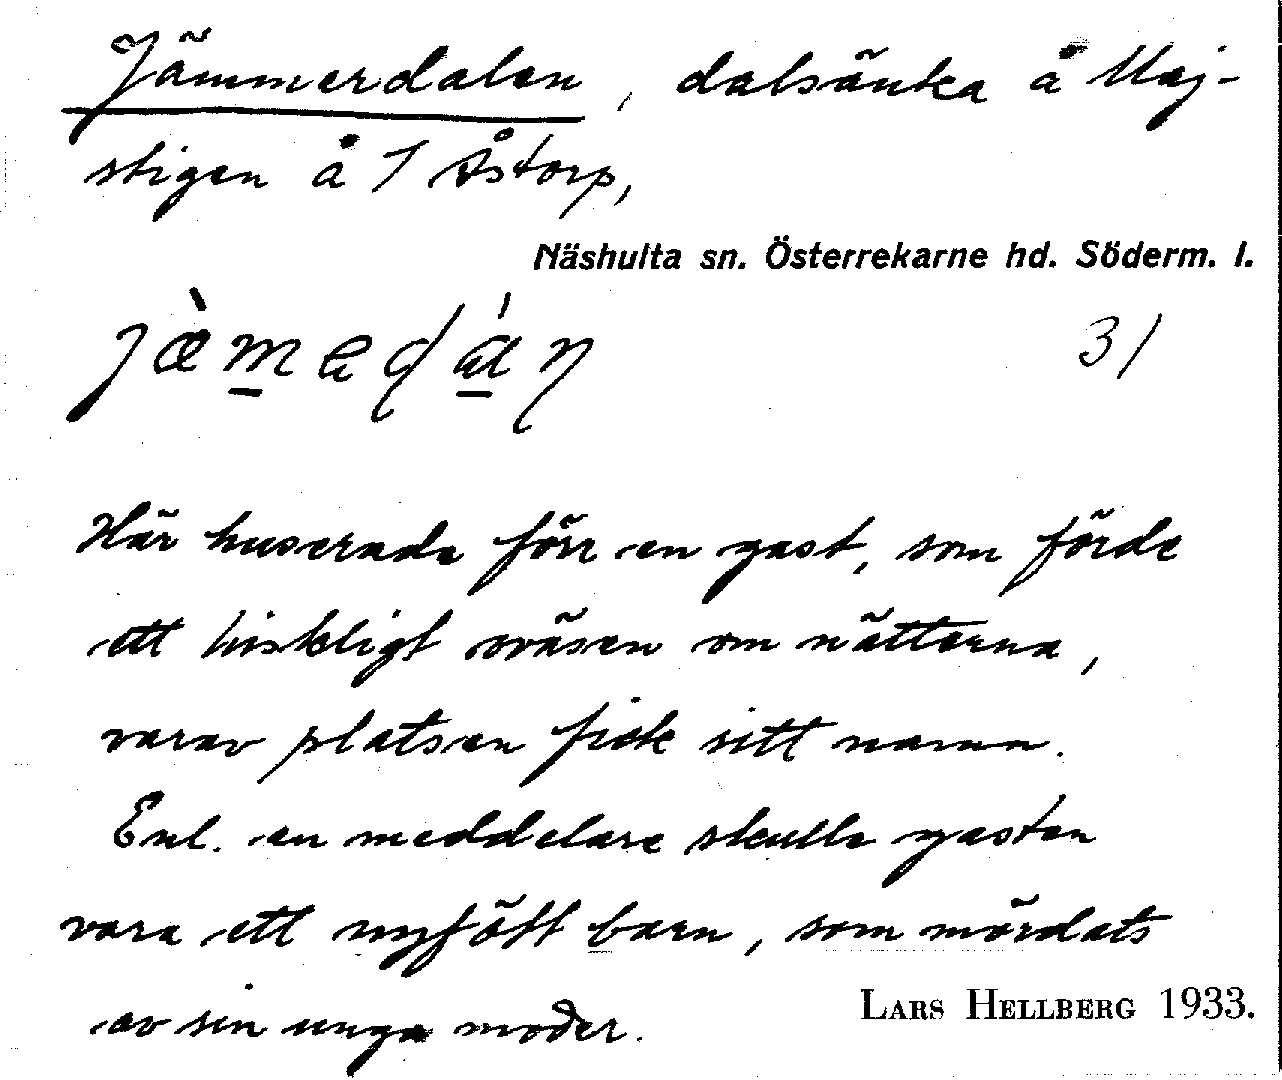 Jämmerdalen, dalsänka å Maj-
stigen å 1 Åstorp,
Näshulta sn. Österrekarne hd. Söderm. l.
jæ̀medán
31
Här huserade förr en gast, som förde
ett hiskligt oväsen om nätterna,
varav platsen fick sitt namn.
Enl. en meddelare skulle gasten
vara ett nyfött barn, som mördats
av sin unga moder.
LARS HELLBERG 1933.